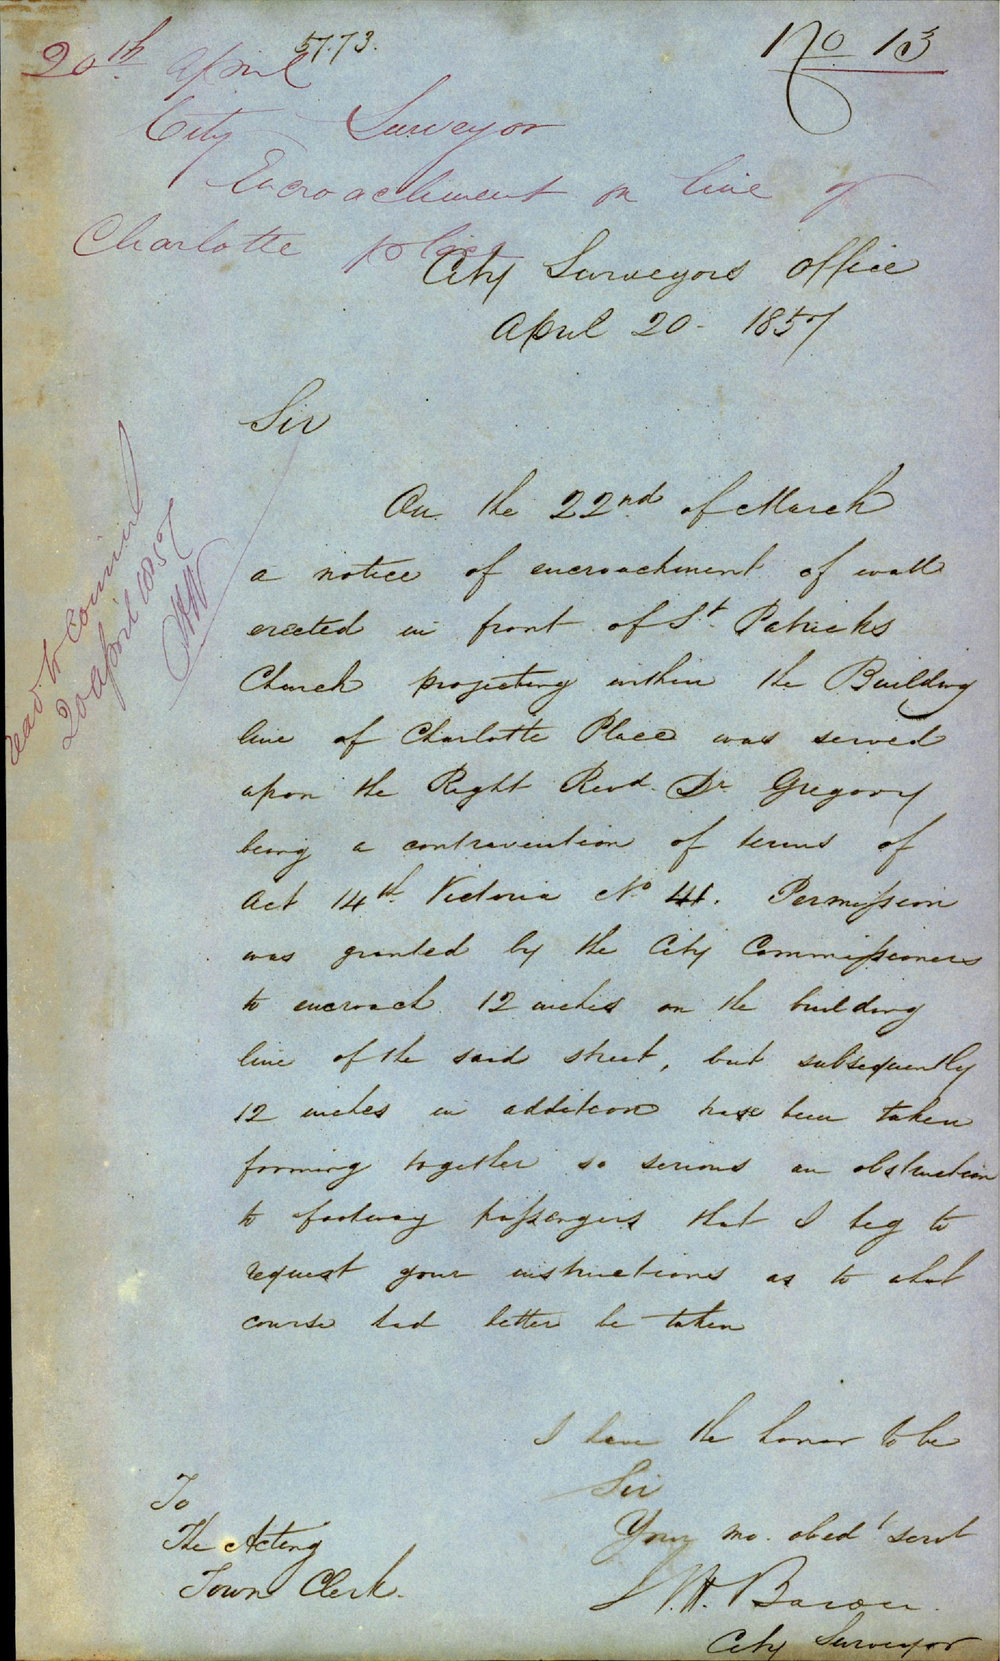 20th April
57.73.
No 13
City Surveyor
Encroachment on line of
Charlotte place
City Surveyors Office
April 20 - 1857
Read to Council
20 April 1857
Sir
On the 22nd of March
a notice of encroachment of wall
erected in front of St. Patricks
Church projecting within the Building
line of Charlotte Place was served
upon the Right Revd. Dr Gregory
being a contravention of terms of
Act 14th Victoria No 41. Permission
was granted by the City Commissioners
to encroach 12 inches on the building
line of the said street, but subsequently
12 inches in addition have been taken
forming together so serious an obstruction
to footway passengers that I beg to
request your instructions as to what
course had better be taken
I have the honor to be
Sir
Your mo. obedt servt
W. H. Baron
City Surveyor
To
The Acting
Town Clerk.